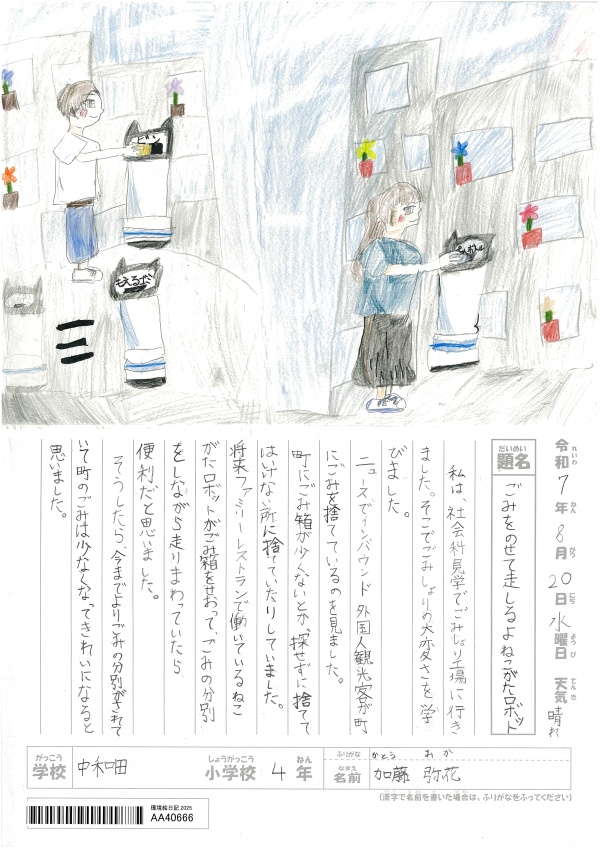 ビン
もえるゴミ
令和7年8月20日水曜日 天気 晴れ
れいわ ねん がつ にち ようび てんき
だいめい
題名
ごみをのせて走しるよねこがたロボット
私は、社会科見学でごみしょり工場に行き
ました。そこでごみしょりの大変さを学
びました。
ニュースでインバウンド外国人観光客が町
にごみを捨てているのを見ました。
町にごみ箱が少くないとか、探せずに捨てて
はいけない所に捨てていたりしていました。
将来ファミリーレストランで働いているねこ
がたロボットがごみ箱をせおって、ごみの分別
をしながら走りまわっていたら
便利だと思いました。
そうしたら、今までよりごみの分別がされて
いて町のごみは少なくなってきれいになると
思いました。
がっこう
学校
中和田
しょうがっこう
小学校
4
ねん
年
ふりがな
かとう おか
なまえ
名前
加藤 弥花
(漢字で名前を書いた場合は、ふりがなをふってください)
環境絵日記 2025
AA40666